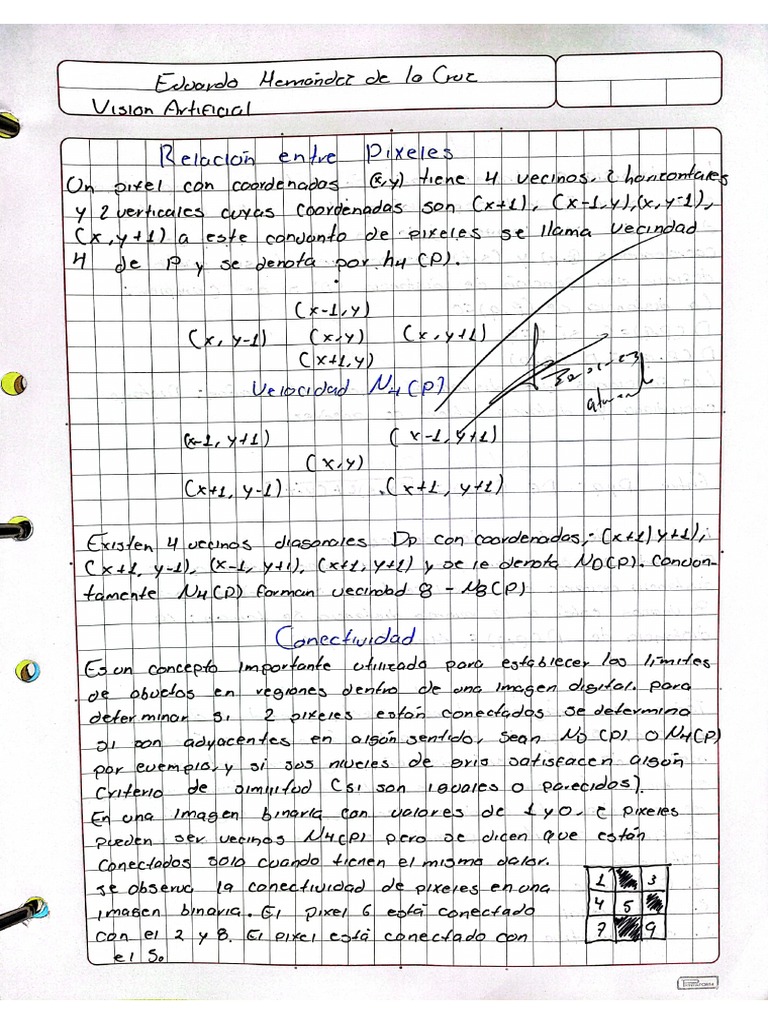 Eduardo Hernández de la Cruz
Vision Artificial
Relación entre Pixeles
Un pixel con coordenadas (x,y) tiene 4 vecinos, 2 horizontales
y 2 verticales cuyas coordenadas son (x+1), (x-1,y),(x,y-1),
(x,y+1) a este conjunto de pixeles se llama vecindad
4 de P y se denota por h4(P).
(x-1,y)
(x,y-1) (x,y) (x,y+1)
(x+1,y)
Velocidad N4(P)
(x-1,y+1) (x-1,y+1)
(x,y)
(x+1,y-1) (x+1,y+1)
Existen 4 vecinos diagonales Dp con coordenadas,-(x+1)y+1),
(x+1,y-1), (x-1,y+1), (x+1,y+1) y se le denota ND(P). Conjun-
tamente N4(P) forman vecindad 8 - N8(P)
Conectividad
Es un concepto importante utilizado para establecer los limites
de objetos en regiones dentro de una imagen digital. para
determinar si 2 pixeles están conectados se determina
si son adyacentes en algún sentido, sean ND(P) o N4(P)
por ejemplo, y si sus niveles de gris satisfacen algún
Criterio de similitud (si son iguales o parecidos).
En una imagen binaria con valores de 1 y 0, 2 pixeles
pueden ser vecinos N4(P) pero se dicen que están
Conectados solo cuando tienen el mismo valor.
se observa la conectividad de pixeles en una
imagen binaria. El pixel 6 está conectado
con el 2 y 8. El pixel está conectado con
el 5.
1 3
4 5
7 9